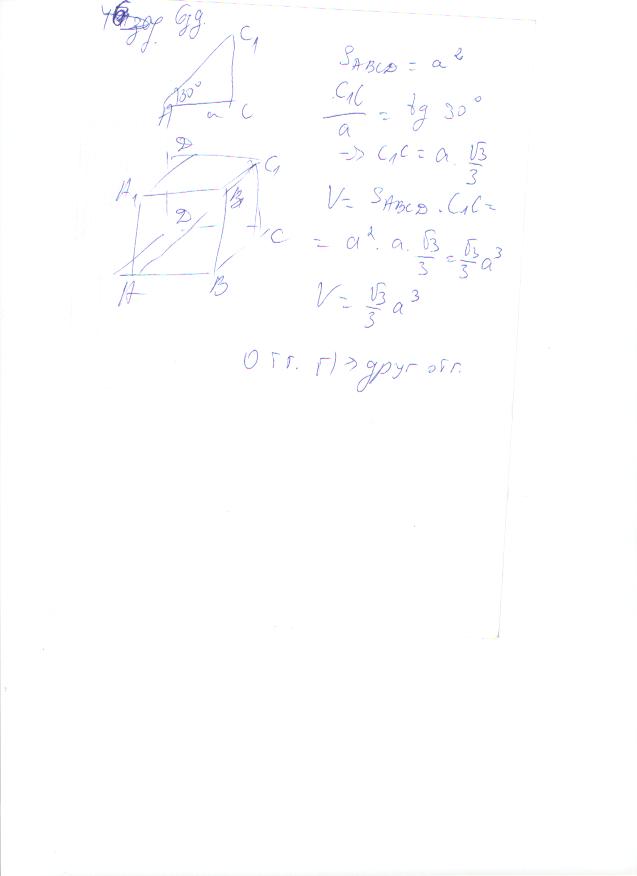 6зд.
C₁
30°
A a C
D
C₁
A₁ B₁
D
C
A B
S_ABCD = a²
C₁C/a = tg 30°
=> C₁C = a · √3/3
V = S_ABCD · C₁C =
= a² · a · √3/3 = √3/3 a³
V = √3/3 a³
Отг. г) => друг отг.